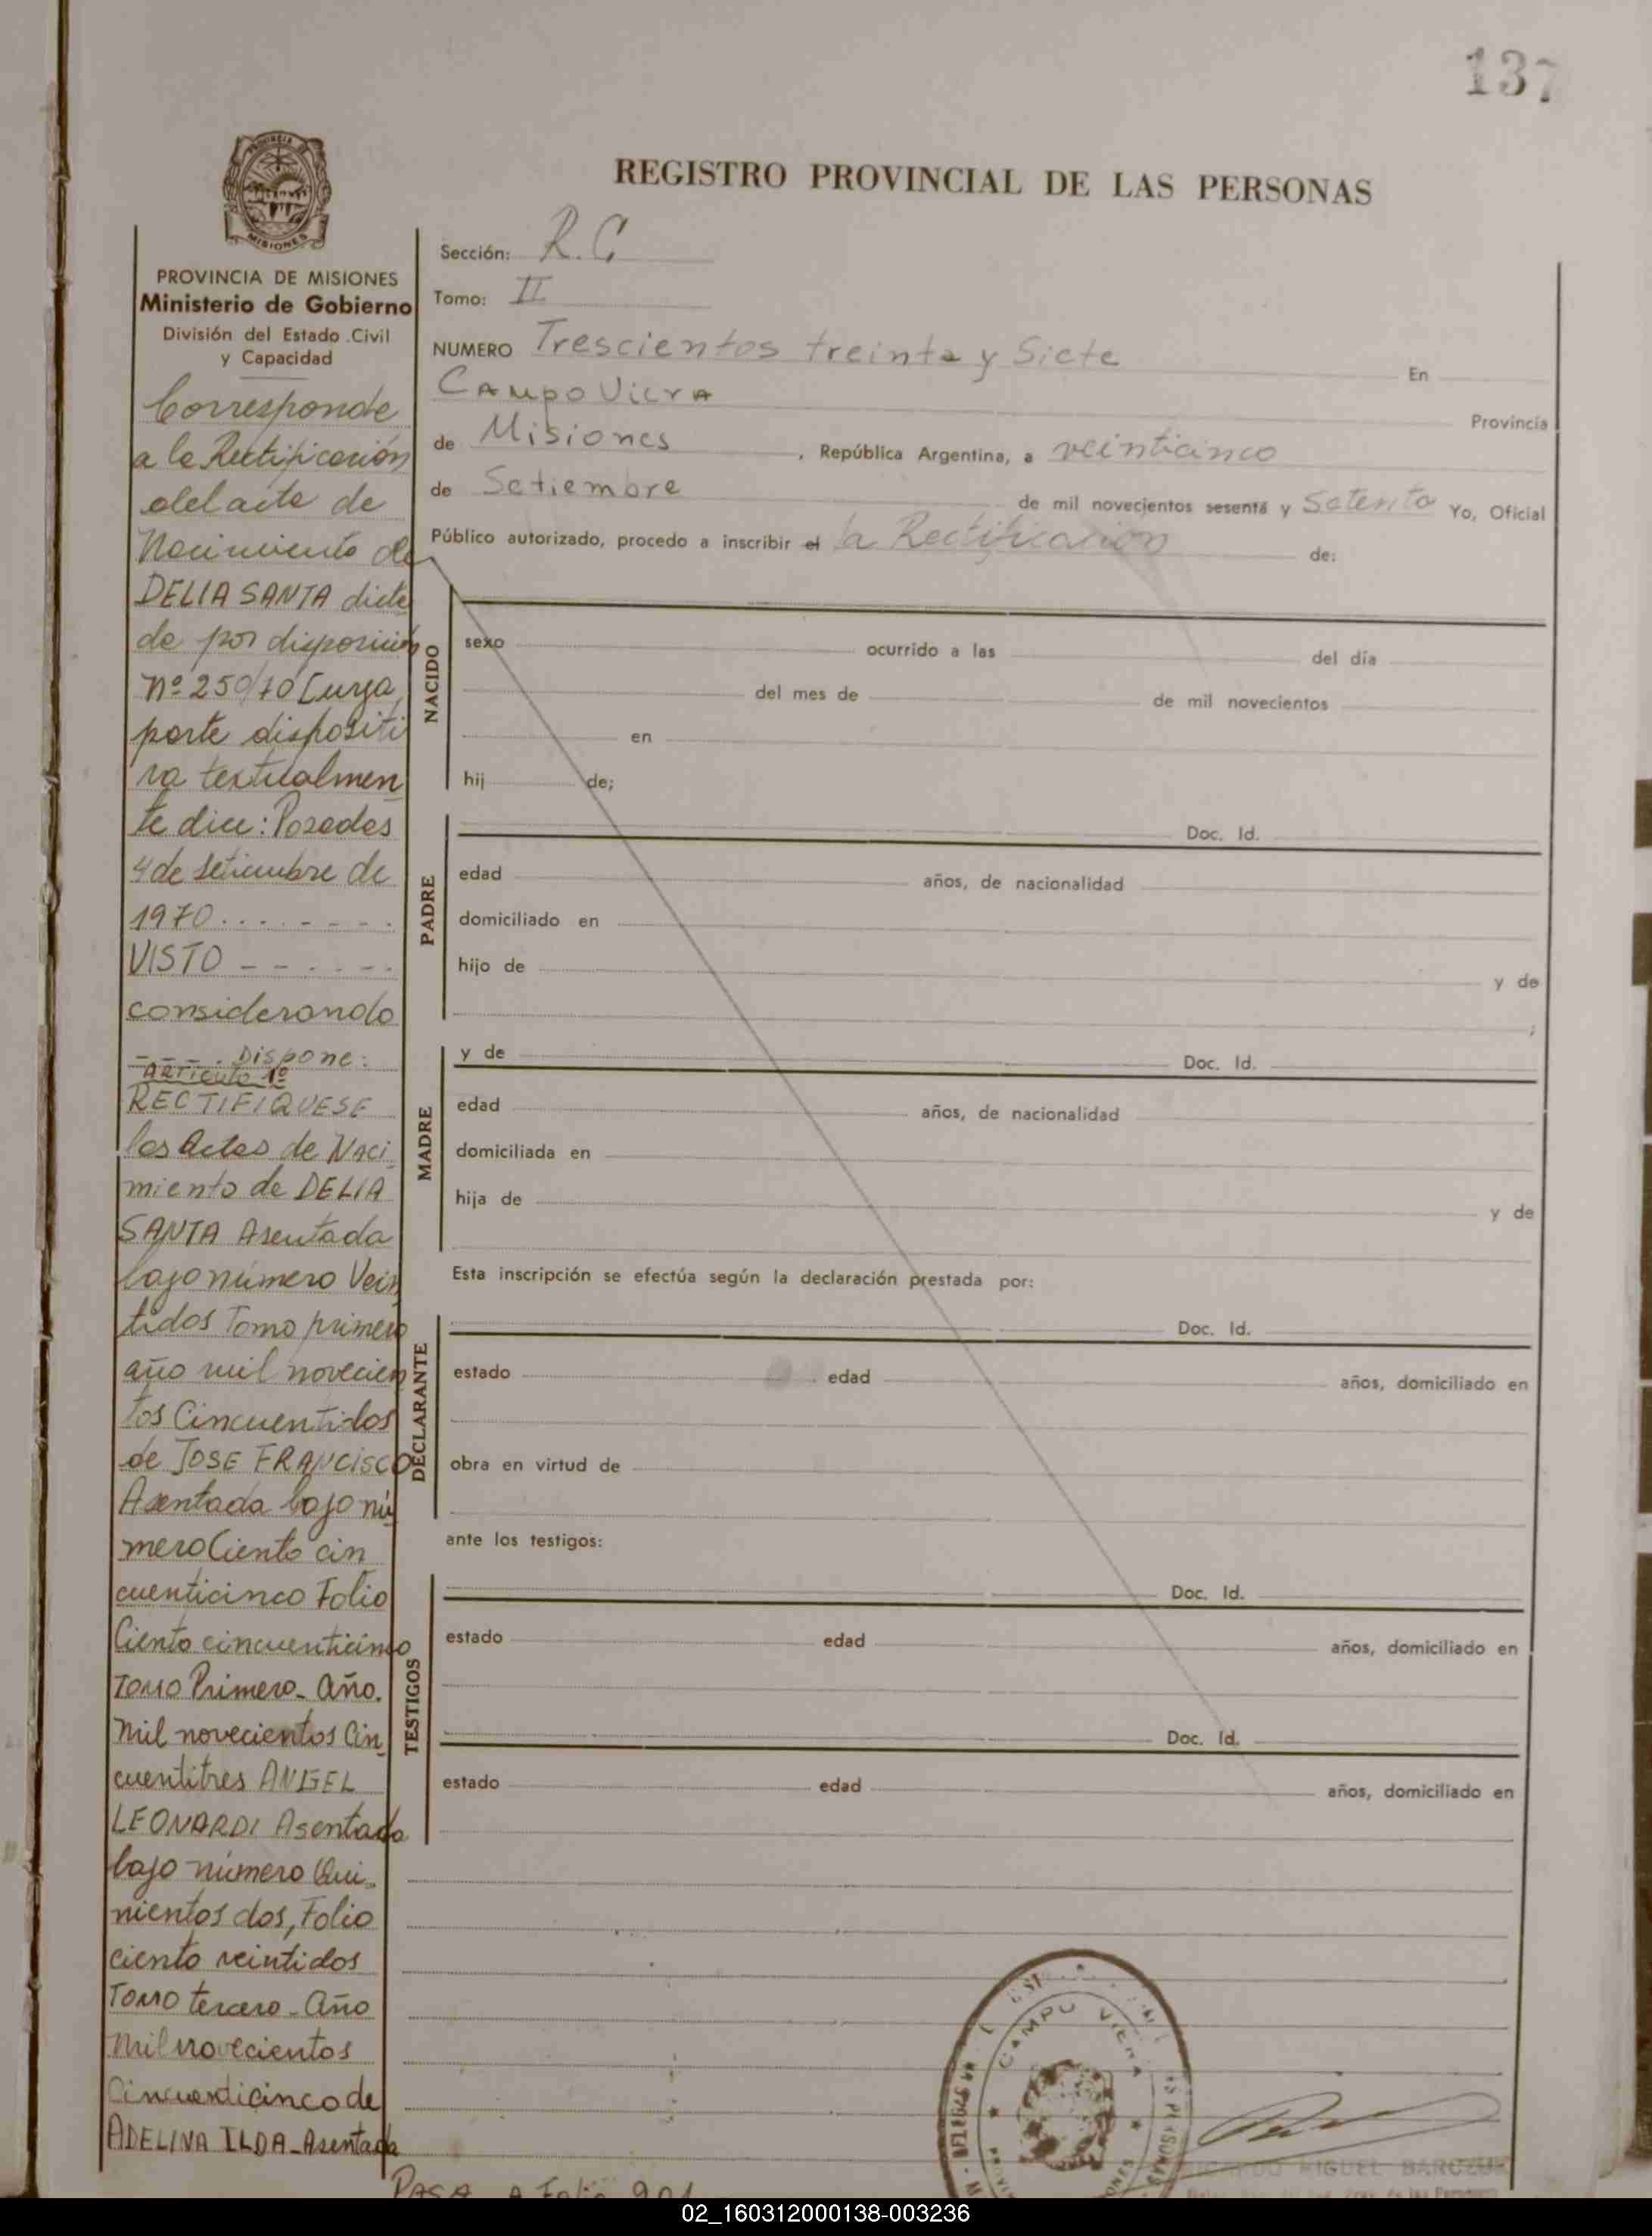 137
REGISTRO PROVINCIAL DE LAS PERSONAS
MISIONES
PROVINCIA DE MISIONES
Ministerio de Gobierno
División del Estado Civil
y Capacidad
Corresponde
a la Rectificación
del acta de
Nacimiento de
DELIA SANTA dicta
da por disposición
nº 250/70 Cuya
parte dispositi
va textualmen
te dice: Posadas
4 de Setiembre de
1970
VISTO
considerando
Dispone:
ARTICULO 1º
RECTIFIQUESE
las Actas de Naci
miento de DELIA
SANTA Asentada
bajo número Vein
tidos Tomo primero
año mil novecien
tos Cincuentidos
de JOSE FRANCISCO
Asentada bajo nú
mero Ciento cin
cuenticinco Folio
Ciento cincuenticinco
TOMO Primero_ Año.
mil novecientos Cin_
cuentitres ANGEL
LEONARDI Asentada
bajo número Qui_
nientos dos, Folio
ciento veintidos
TOMO tercero_Año
Mil novecientos
Cincuenticinco de
ADELINA ILDA_Asentada
Sección: R.C
Tomo: II
NUMERO Trescientos treinta y Siete En
CAMPO Viera Provincia
de Misiones, República Argentina, a veinticinco
de Setiembre de mil novecientos sesenta y Setenta Yo, Oficial
Público autorizado, procedo a inscribir el la Rectificación de:
NACIDO
sexo ocurrido a las del día
del mes de de mil novecientos
en
hij de;
PADRE
Doc. Id.
edad años, de nacionalidad
domiciliado en
hijo de y de
;
MADRE
y de Doc. Id.
edad años, de nacionalidad
domiciliada en
hija de y de
Esta inscripción se efectúa según la declaración prestada por:
DECLARANTE
Doc. Id.
estado edad años, domiciliado en
obra en virtud de
ante los testigos:
TESTIGOS
Doc. Id.
estado edad años, domiciliado en
Doc. Id.
estado edad años, domiciliado en
CAMPO VIERA
MIGUEL BARCZUK
PASA A Folio 201
02_160312000138-003236